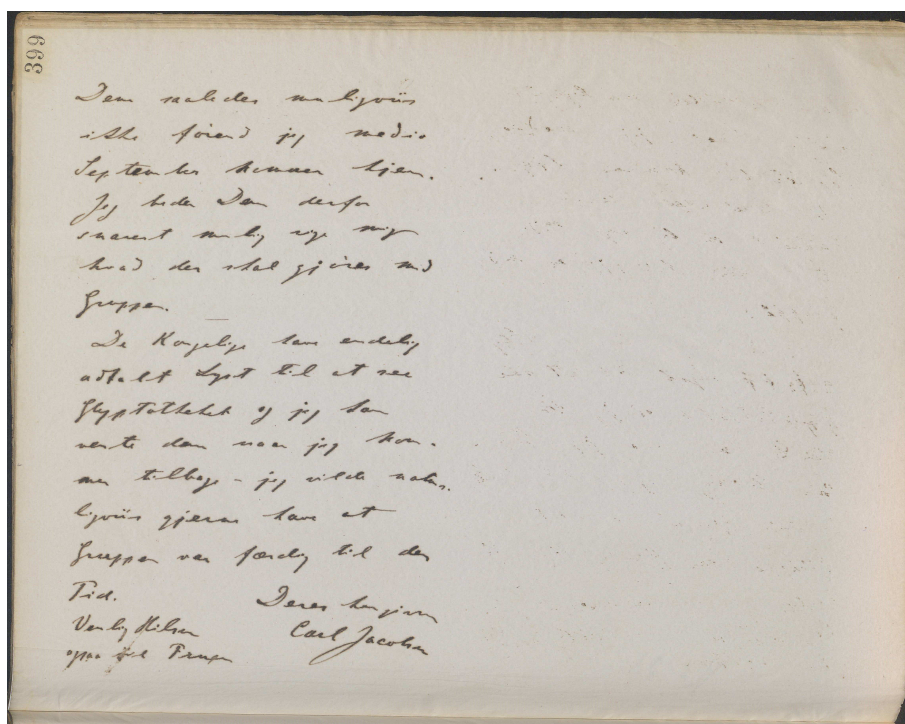 399
Dem saaledes muligviis
ikke førend jeg medio
September kommer hjem.
Jeg beder Dem derfor
snarest mulig sige mig
hvad der skal gjøres med
Gruppen.
De Kongelige have endelig
udtalt Lyst til at see
Glyptotheket og jeg kan
vente dem naar jeg kom-
mer tilbage - jeg vilde natur-
ligviis gjerne have at
Gruppen var færdig til den
Tid.
Deres hengivne
Venlig Hilsen
Carl Jacobsen
ogsaa til Fruen